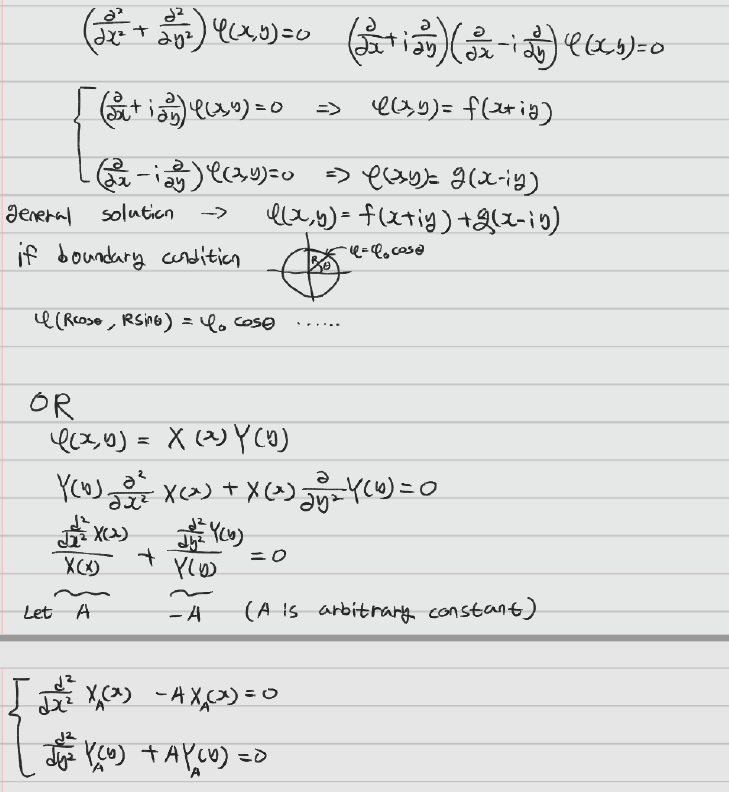 (∂²/∂x² + ∂²/∂y²) φ(x,y)=0   (∂/∂x + i ∂/∂y)(∂/∂x - i ∂/∂y) φ(x,y)=0
(∂/∂x + i ∂/∂y) φ(x,y)=0 => φ(x,y)= f(x+iy)
(∂/∂x - i ∂/∂y) φ(x,y)=0 => φ(x,y)= g(x-iy)
general solution -> φ(x,y)= f(x+iy)+g(x-iy)
if boundary condition R θ φ=φ₀cosθ
φ(Rcosθ, Rsinθ) = φ₀ cosθ ......
OR
φ(x,y) = X(x)Y(y)
Y(y) ∂²/∂x² X(x) + X(x) ∂/∂y² Y(y)=0
(d²/dx² X(x))/X(x) + (d²/dy² Y(y))/Y(y) =0
Let A   -A (A is arbitrary constant)
d²/dx² X_A(x) - A X_A(x)=0
d²/dy² Y_A(y) + A Y_A(y)=0